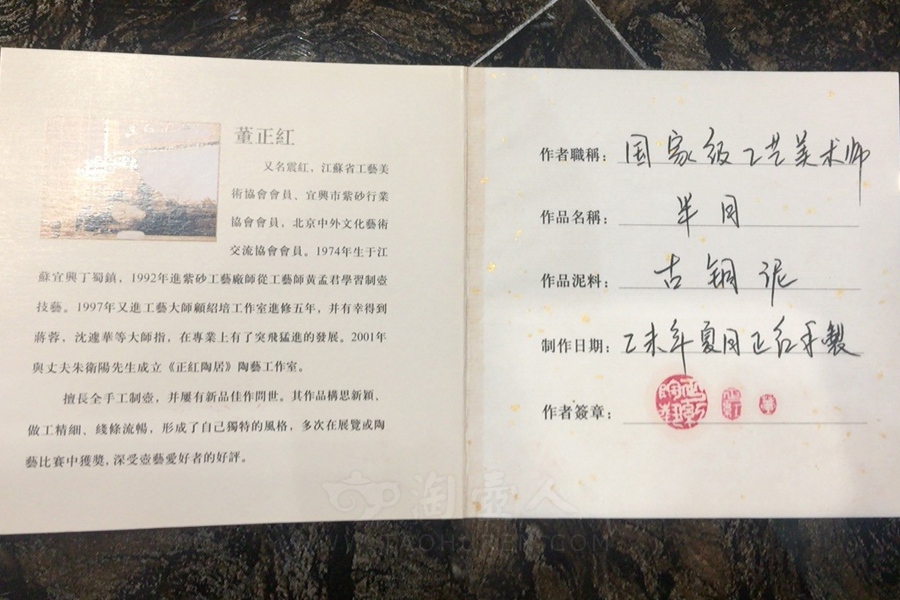 董正紅
又名震紅，江蘇省工藝美
術協會會員、宜興市紫砂行業
協會會員，北京中外文化藝術
交流協會會員。1974年生于江
蘇宜興丁蜀鎮，1992年進紫砂工藝廠師從工藝師黃孟君學習制壺
技藝。1997年又進工藝大師顧紹培工作室進修五年，并有幸得到
蔣蓉，沈遽華等大師指，在專業上有了突飛猛進的發展。2001年
與丈夫朱衛陽先生成立《正紅陶居》陶藝工作室。
擅長全手工制壺，并屢有新品佳作問世。其作品構思新穎、
做工精細、綫條流暢，形成了自己獨特的風格，多次在展覽或陶
藝比賽中獲獎，深受壺藝愛好者的好評。
作者職稱：国家级工艺美术师
作品名稱：半月
作品泥料：古铜泥
制作日期：乙未年夏月正红手製
作者簽章：
淘壺人